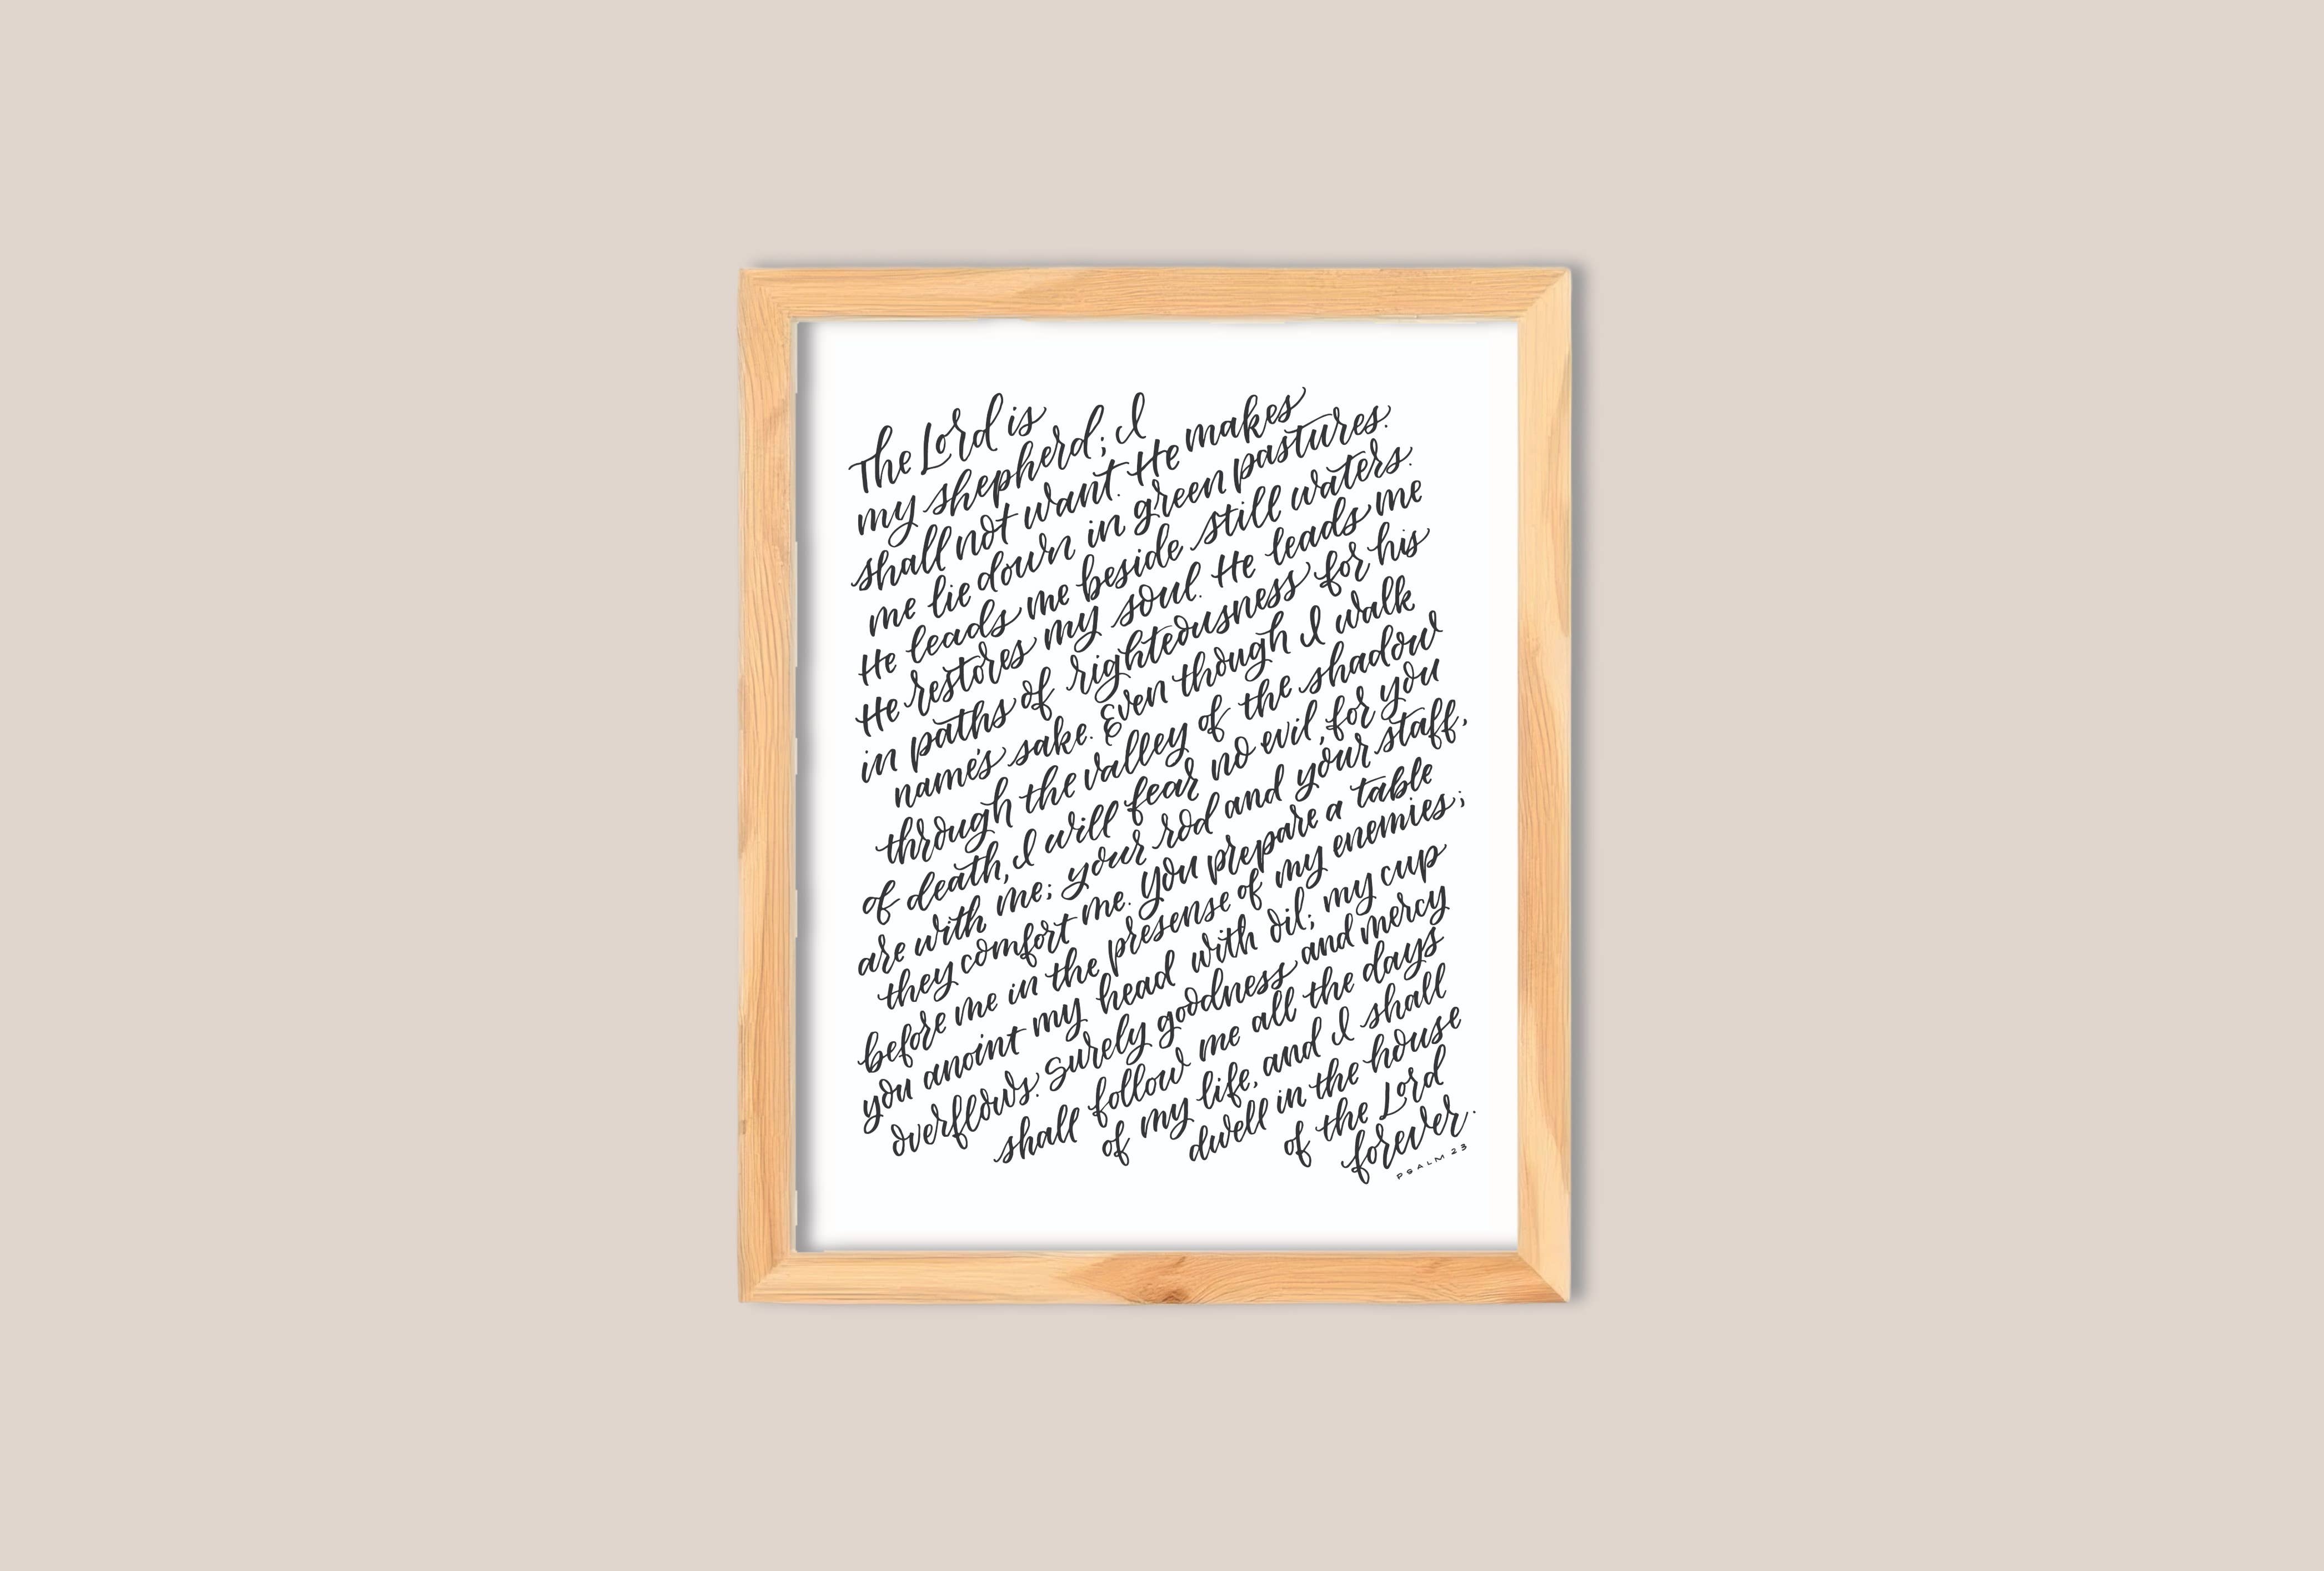 The Lord is
my shepherd; I
shall not want. He makes
me lie down in green pastures.
He leads me beside still waters.
He restores my soul. He leads me
in paths of righteousness for his
name's sake. Even though I walk
through the valley of the shadow
of death, I will fear no evil, for you
are with me; your rod and your staff,
they comfort me. You prepare a table
before me in the presense of my enemies;
you anoint my head with oil; my cup
overflows. Surely goodness and mercy
shall follow me all the days
of my life, and I shall
dwell in the house
of the Lord
forever.
PSALM 23